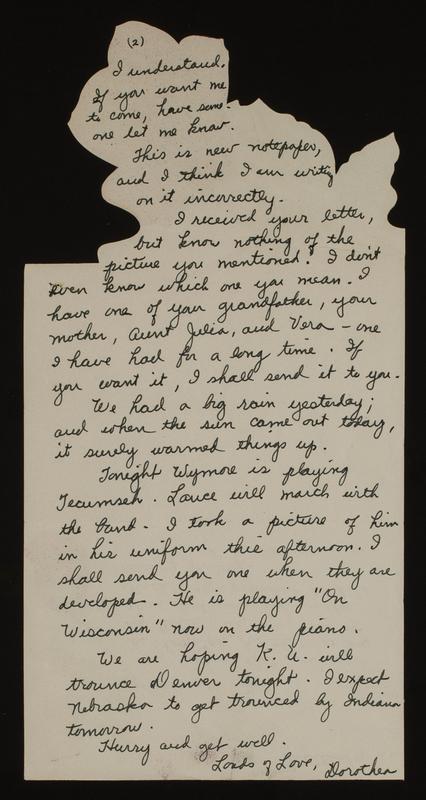 (2)
I understand.
If you want me
to come, have some-
one let me know.
This is new notepaper,
and I think I am writing
on it incorrectly.
I received your letter,
but know nothing of the
picture you mentioned. I don't
even know which one you mean. I
have one of your grandfather, your
mother, Aunt Julia, and Vera - one
I have had for a long time. If
you want it, I shall send it to you.
We had a big rain yesterday;
and when the sun came out today,
it surely warmed things up.
Tonight Wymore is playing
Tecumseh. Lance will march with
the band. I took a picture of him
in his uniform this afternoon. I
shall send you one when they are
developed. He is playing "On
Wisconsin" now on the piano.
We are hoping K. U. will
trounce Denver tonight. I expect
Nebraska to get trounced by Indiana
tomorrow.
Hurry and get well.
Loads of Love, Dorothea